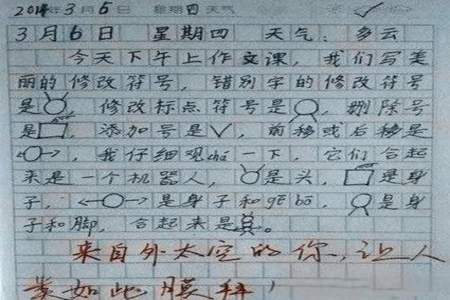 2014年3月6日 星期四 天气
3月6日 星期四 天气：多云
今天下午上作文课，我们写美
丽的修改符号，错别字的修改符号
是，修改标点符号是，删除号
是，添加号是√，前移或后移是
，我仔细观chá一下，它们合起
来是一个机器人，是头，是身
子，是身子和gēbo，是身
子和脚，合起来是。
来自外太空的你，让人
类如此膜拜！